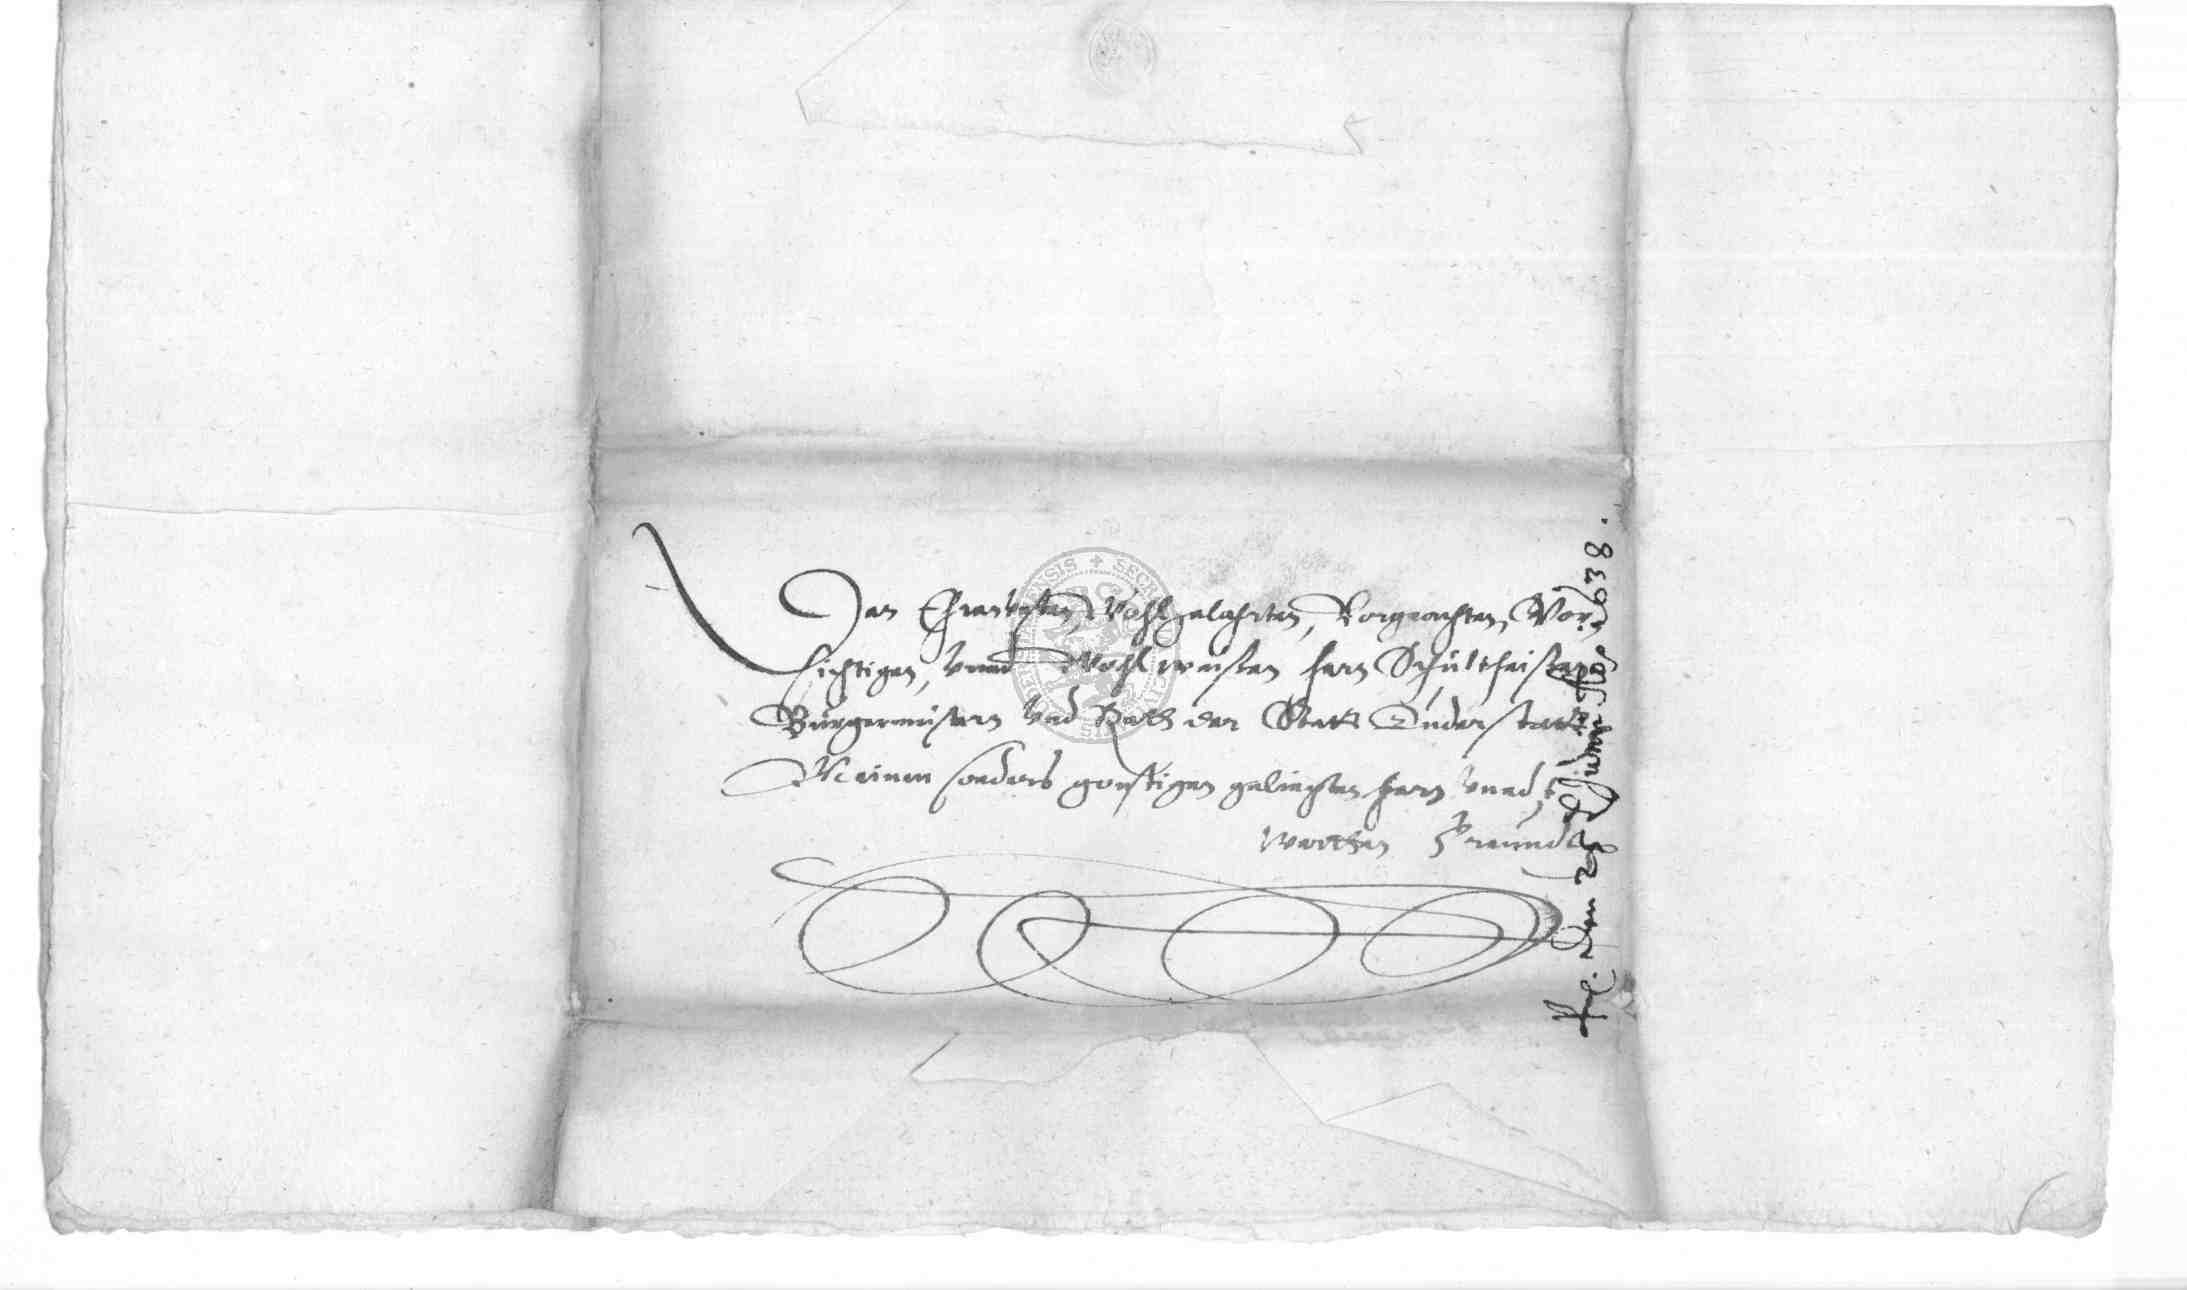 Den Ehrenvesten, Wohlgelahrten, Vorgeachten, Vor-
sichtigen, vnnd Wohlweisen hern Schultheissen
Bürgermeistern vnd Rath der Statt Duderstatt
Meinen sonders gonstigen geliepten hern vnnd
werthen Freunden
den 25 Ao 1638.